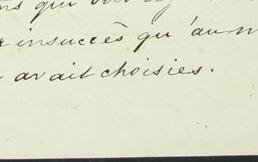 qui
insuccès qu'au
avait choisies.